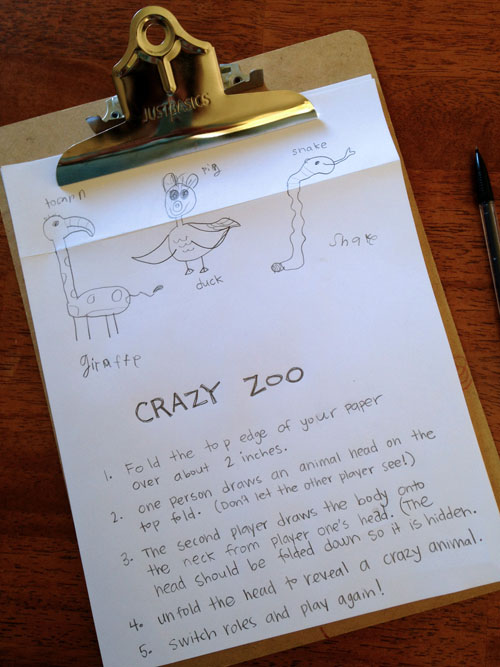 JUSTBASICS
pig
snake
tocan
duck
snake
giraffe
CRAZY ZOO
1. Fold the top edge of your paper
over about 2 inches.
2. one person draws an animal head on the
top fold. (Don't let the other player see!)
3. The second player draws the body onto
the neck from player one's head. (The
head should be folded down so it is hidden.
4. unfold the head to reveal a crazy animal.
5. switch roles and play again!